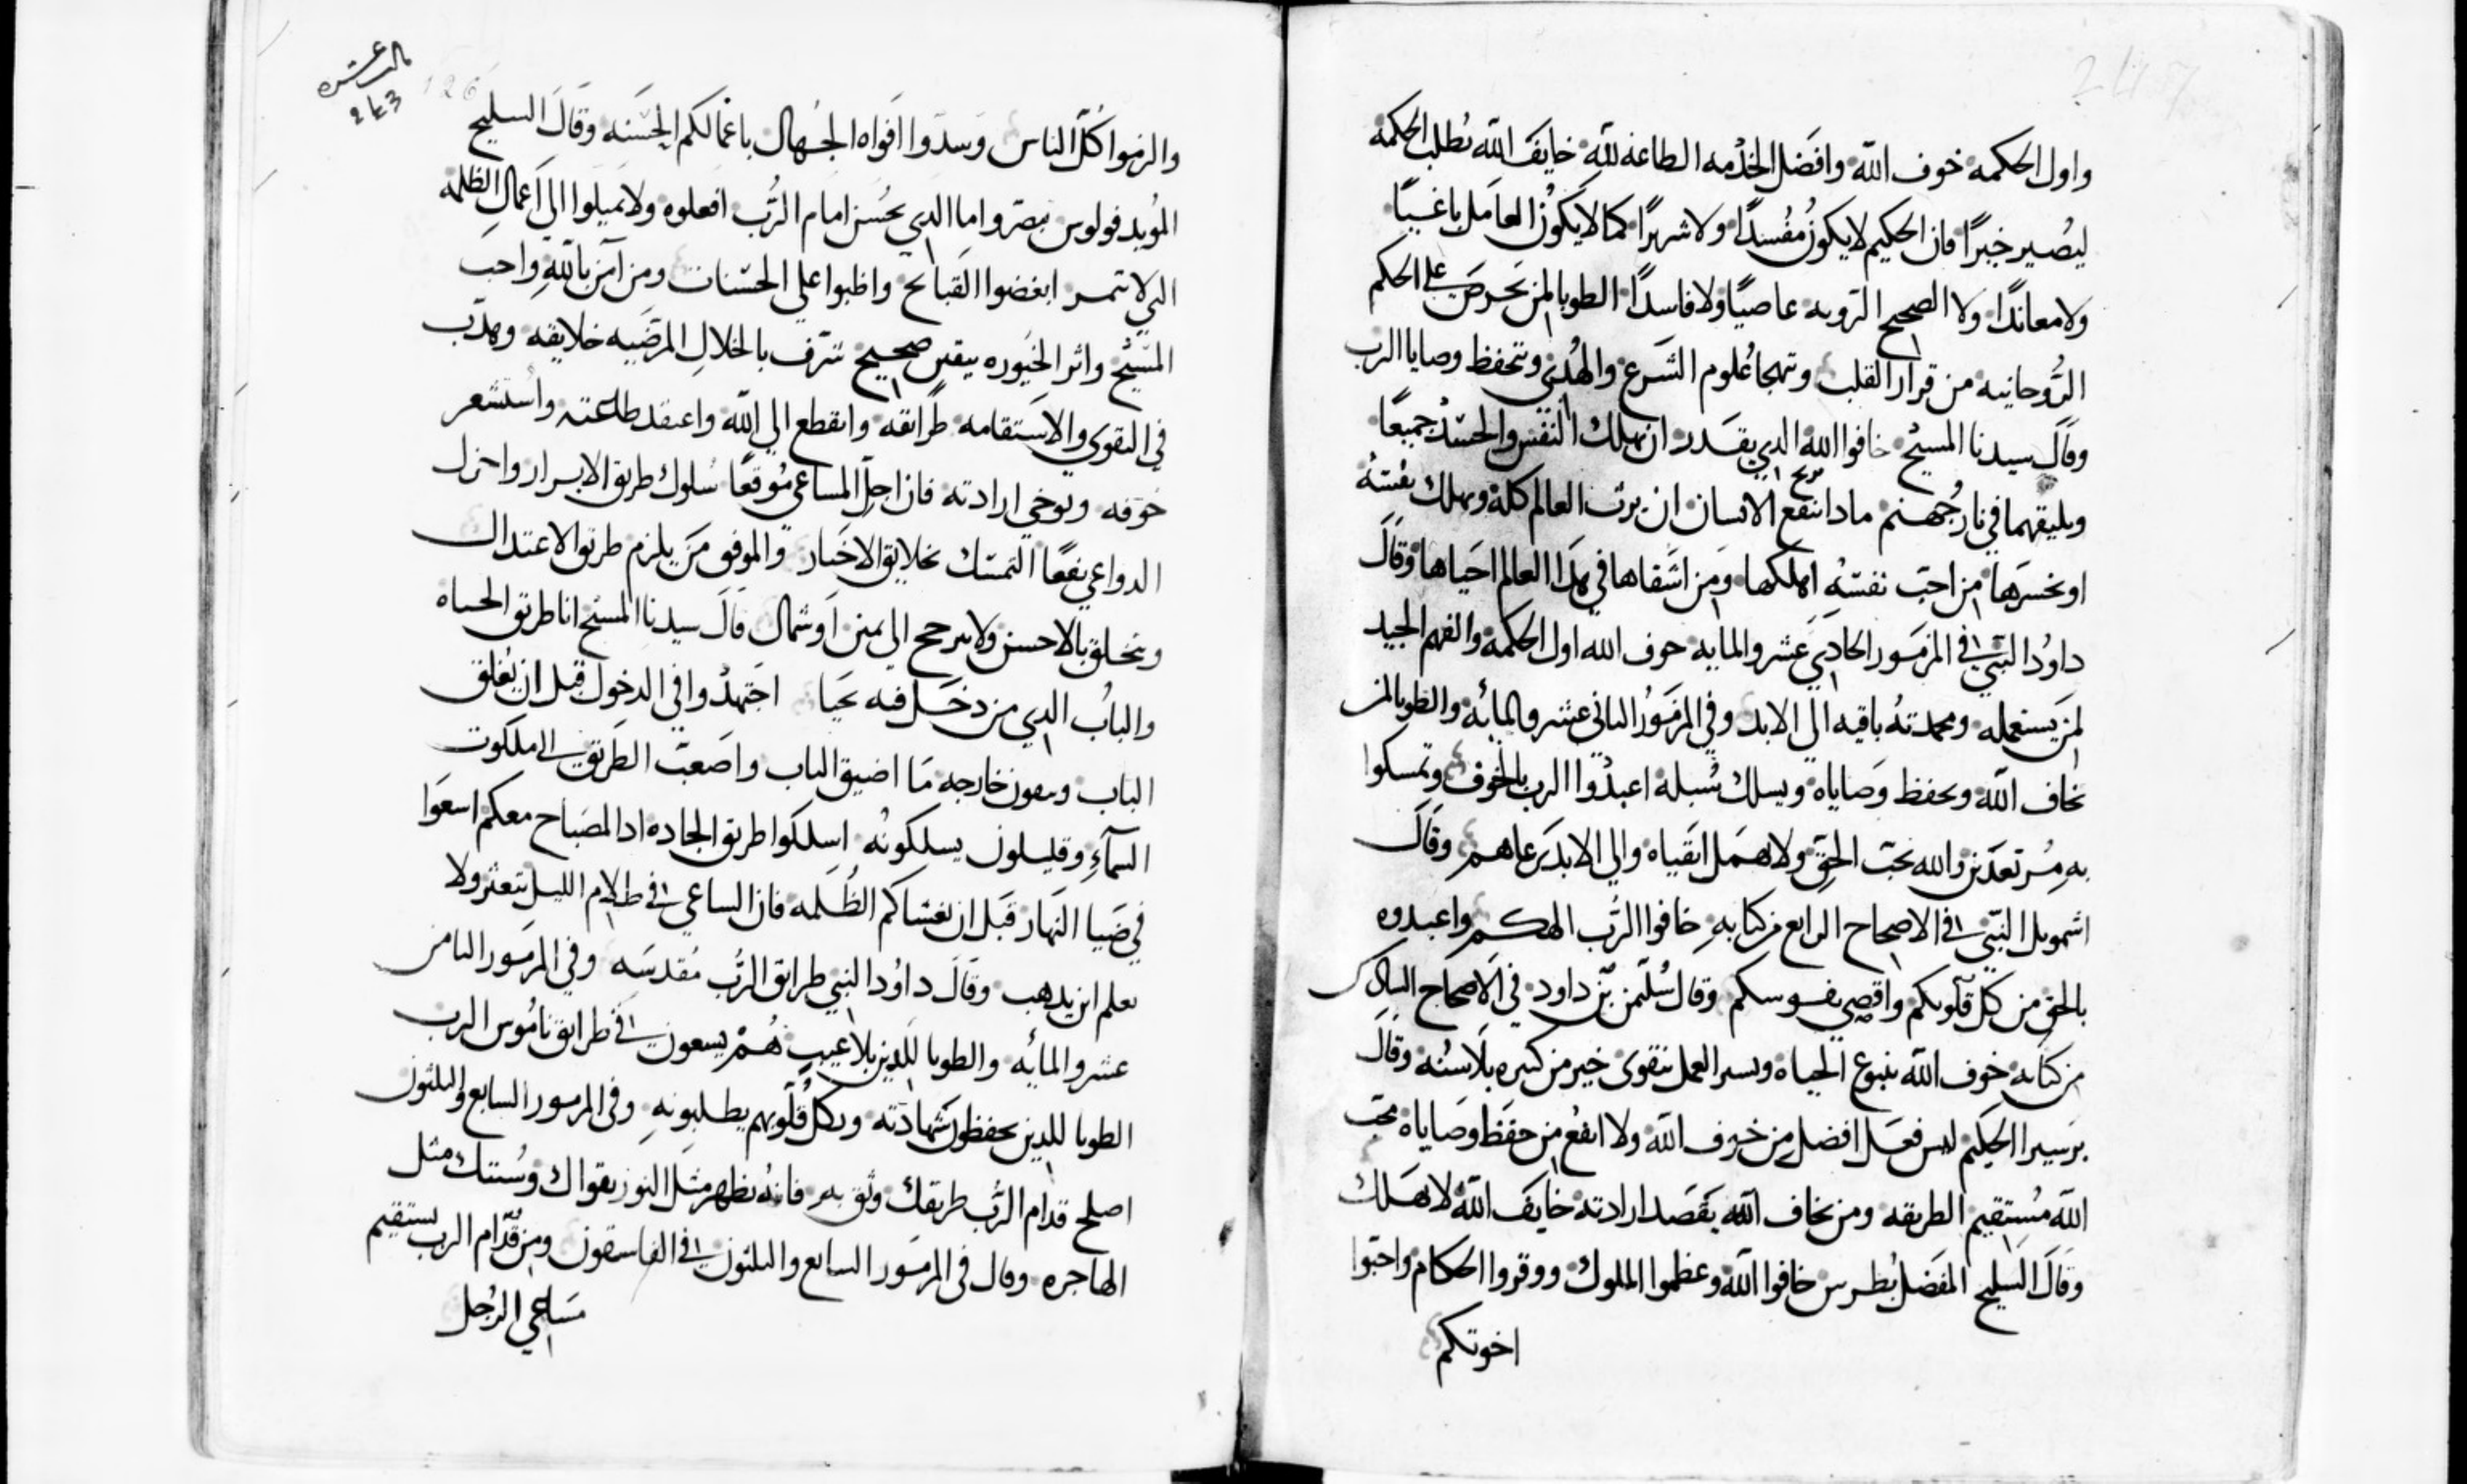 247
واول الحكمه خوف الله وافضل الخدمه الطاعه لله خايف الله يطلب الحكمه
ليصير خبرًا فان الحكيم لا يكون مفسدًا ولا شرهًا كما لا يكون العامل باغيًا
ولا معاندًا ولا الصحيح الرويه عاصيًا ولا فاسدًا الطوبا لمن يحرص على الحكم
الروحانيه من قرار القلب ويتهجا علوم الشرع والهدى ويتحفظ وصايا الرب
وقال سيدنا المسيح خافوا الله الدي يقدر ان يهلك النفس والجسد جميعًا
ويليقهما في نار جهنم مادا ينتفع الانسان ان يرث العالم كله ويهلك نفسه
او يخسرها من احب نفسه اهلكها ومن اشقاها في هدا العالم احياها وقال
داود النبي في المزمور الحادي عشر والمايه خوف الله اول الحكمه والفهم الجيد
لمن يستعمله ومحمدته باقيه الى الابد وفي المزمور الثاني عشر والمايه والطوبا لمن
يخاف الله ويحفظ وصاياه ويسلك سبله اعبدوا الرب بالخوف وتمسكوا
به مرتعدين والله يحب الحق ولا يهمل اتقياه والي الابد يرعاهم وقال
اشمويل النبي في الاصحاح الرابع من كتابه خافوا الرب الهكم واعبدوه
بالحق من كل قلوبكم واقصى نفوسكم وقال سليمن بن داود في الاصحاح السادس
من كتابه خوف الله ينبوع الحياه ويسير العمل بتقوى خير من كثيره بلا سنه وقال
برسيرا الحكيم ليس فعل افضل من خوف الله ولا انفع من حفظ وصاياه محب
الله مستقيم الطريقه ومن يخاف الله يقصد ارادته خايف الله لا يهلك
وقال السليح المفضل بطرس خافوا الله وعظموا الملوك ووقروا الحكام واحبوا
اخوتكم
243
126
والزموا كل الناس وسدوا افواه الجهال باعمالكم الحسنه وقال السليح
المويد فولوس واما الدي يحسن امام الرب افعلوه ولا تميلوا الي اعمال الظلمه
التي لا تثمر ابغضوا القبائح واظبوا على الحسنات ومن آمن بالله واحب
المسيح واثر الخيوره بيقين صحيح شرف بالخلال المرضيه خلايقه وهدب
في التقوى والاستقامه طرايقه وانقطع الي الله واعتقد طاعته واستشعر
خوفه وتوخى ارادته فان اجل المساعي موقعًا سلوك طريق الابرار واجزل
الدواعي نفعًا التمسك بخلايق الاخيار والموفق من يلزم طريق الاعتدال
ويتخلق بالاحسن ولا يترجح الى يمين او شمال قال سيدنا المسيح انا طريق الحياه
والباب الدي من دخل فيه يحيا اجتهدوا في الدخول قبل ان يغلق
الباب وتبقون خارجه ما اضيق الباب واصعب الطريق الى ملكوت
السماء وقليلون يسلكونه اسلكوا طريق الجاده اد المصباح معكم اسعوا
في ضيا النهار قبل ان تغشاكم الظلمه فان الساعي في ظلام الليل يتعثر ولا
يعلم اين يدهب وقال داود النبي طرايق الرب مقدسه وفي المزمور الثامن
عشر والمايه والطوبا للدين بلا عيب هم يسعون في طرايق ناموس الرب
الطوبا للدين يحفظون شهادته وبكل قلوبهم يطلبونه وفي المزمور السابع والثلثون
اصلح قدام الرب طريقك وثق به فانه يظهر مثل النور تقواك وسنتك مثل
الهاجره وقال في المزمور السابع والثلثون في الفاسقون ومن قدام الرب يستقيم
مساعي الرجل